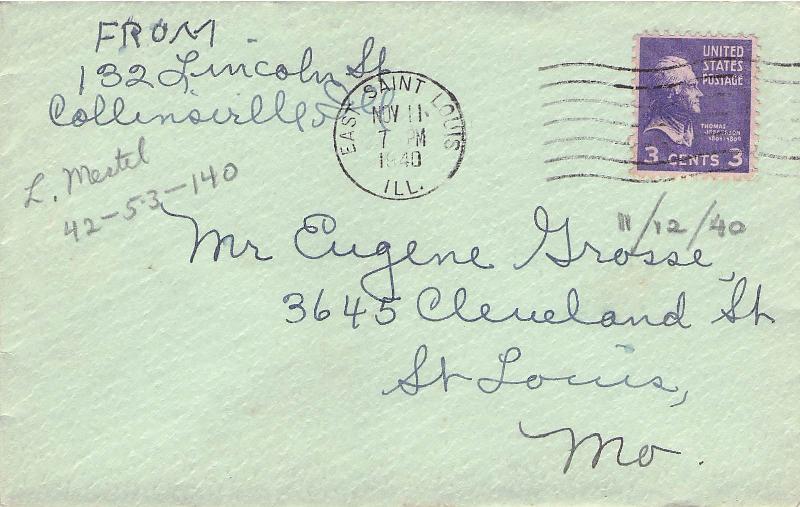 FROM
132 Lincoln St
Collinsville, Ill
L. Mestel
42-53-140
EAST SAINT LOUIS
NOV 11
7 PM
1940
ILL.
UNITED
STATES
POSTAGE
THOMAS
JEFFERSON
1801-1809
3 CENTS 3
11/12/40
Mr Eugene Grosse,
3645 Cleveland St
St Louis,
Mo.